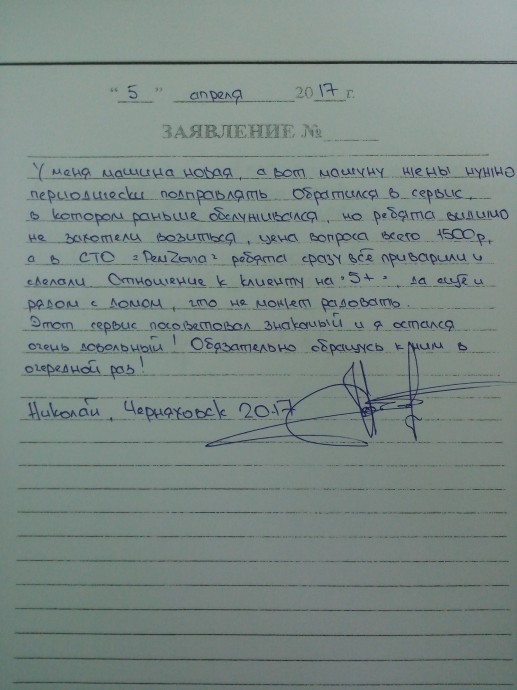 "5" апреля 2017 г.
ЗАЯВЛЕНИЕ №
У меня машина новая, а вот машину жены нужно
периодически подправлять. Обратился в сервис,
в котором раньше обслуживался, но ребята видимо
не захотели возиться, цена вопроса всего 1500р,
а в СТО "РемZona" ребята сразу всё приварили и
сделали. Отношение к клиенту на "5+", да ещё и
рядом с домом, что не может радовать.
Этот сервис посоветовал знакомый и я остался
очень довольный! Обязательно обращусь к ним в
очередной раз!
Николай, Черняховск 2017